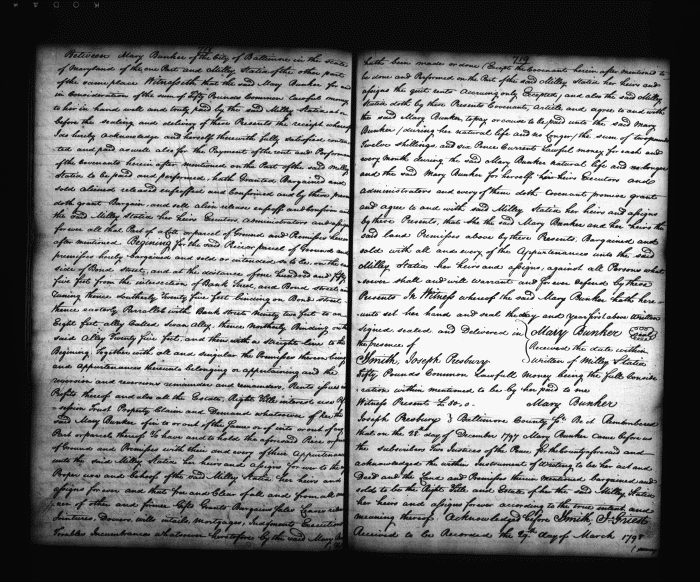 Between Mary Bunker of the City of Baltimore in the State
of Maryland of the one Part and Milley Statia of the other part
of the same place Witnesseth that the said Mary Bunker for and
in Consideration of the sum of Fifty Pounds Common Lawful money
to her in hand well and truly paid by the said Milley Statia at or
before the sealing and delivery of these Presents the receipt whereof
she hereby acknowledge and herself therewith fully satisfied conten
ted and paid as well also for the Payment of the rents and Performance
of the Covenants herein after mentioned on the Part of the said Milley
Statia to be paid and performed, hath Granted Bargained and
sold aliened released enfeoffed and Confirmed and by these presents
doth grant Bargain and sell alien release enfeoff and Confirm unto
the said Milley Statia her heirs Executors administrators and assigns
for ever all that Part of a Lott or parcel of Ground and Premises herein
after mentioned Begining for the said Piece or parcel of Ground and
premises hereby bargained and sold or intended so to be, on the
side of Bond street, and at the distance of one hundred and fifty
five feet from the intersection of Bank Street, and Bond street
running thence southerly Twenty five feet binding on Bond street
thence easterly Parallel with Bank Street Ninety two feet to an
Eight feet alley Called Swan Alley, thence Northerly Binding on
said Alley Twenty five feet, and then with a straight line to the
Begining, Together with all and singular the Premises thereon being
and Appurtenances thereunto belonging or appertaining and the
reversion and reversions remainder and remainders, Rents Issues
Profits thereof and also all the Estate, Right Title interest use
Trust Property Claim and Demand whatsoever of her the
said Mary Bunker of in to or out of the same or of into or out of any
Part or parcel thereof To have and to hold the aforesaid Piece or
of Ground and Premises with them and every of their Appurtenances
unto the said Milley Statia her heirs and assigns for ever to the
Proper use and behoof of the said Milley Statia her heirs and
assigns for ever and that free and Clear of all and from all
of other and former Gifts Grants Bargains Sales Leases
Jointures, Dowers, wills intails, mortgages, Judgments Executions
Troubles Incumbrances whatsoever heretofore by the said Mary
hath been made or done (Except the Covenants herein after mentioned to
be done and Performed on the Part of the said Milley Statia her heirs and
assigns the quit rents accruing only Excepted, and also the said Milley
Statia doth by these Presents Covenant, article and agree to and with
the said Mary Bunker to pay or cause to be paid unto the said Mary
Bunker (during her natural life and no longer) the sum of
Twelve shillings and six Pence Current lawful money for each and
every month during the said Mary Bunker natural life and no longer
and the said Mary Bunker for herself her heirs Executors and
administrators and every of them doth Covenant promise grant
and agree to and with Milley Statia her heirs and assigns
by these Presents, that she the said Mary Bunker and her heirs the
said land Premises above by these Presents, Bargained and
sold with all and every of the Appurtenances unto the said
Milley Statia her heirs and assigns, against all Persons what
soever shall and will warrant and for ever defend by these
Presents In Witness whereof the said Mary Bunker hath here
unto set her hand and seal the day and year first above written
signed sealed and Delivered in Mary Bunker
the presence of Received the date within
Smith, Joseph Presbury written of Milley Statia
Fifty Pounds Common lawfull money being the full Conside
ration within mentioned to be by her paid to me
Witness Present £50.0. Mary Bunker
Joseph Presbury } Baltimore County Sc. Be it Remembered
that on the 28th day of December 1797 Mary Bunker came before us
the subscribers Two Justices of the Peace for the County aforesaid and
acknowledged the within Instrument of Writing to be her act and
Deed and the Land and Premises therein mentioned bargained and
sold to be the Right Title and Estate of her the said Milley Statia
her heirs and assigns for ever according to the true intent and
meaning thereof. Acknowledged before Smith
Received to be Recorded the 29th day of March 1798